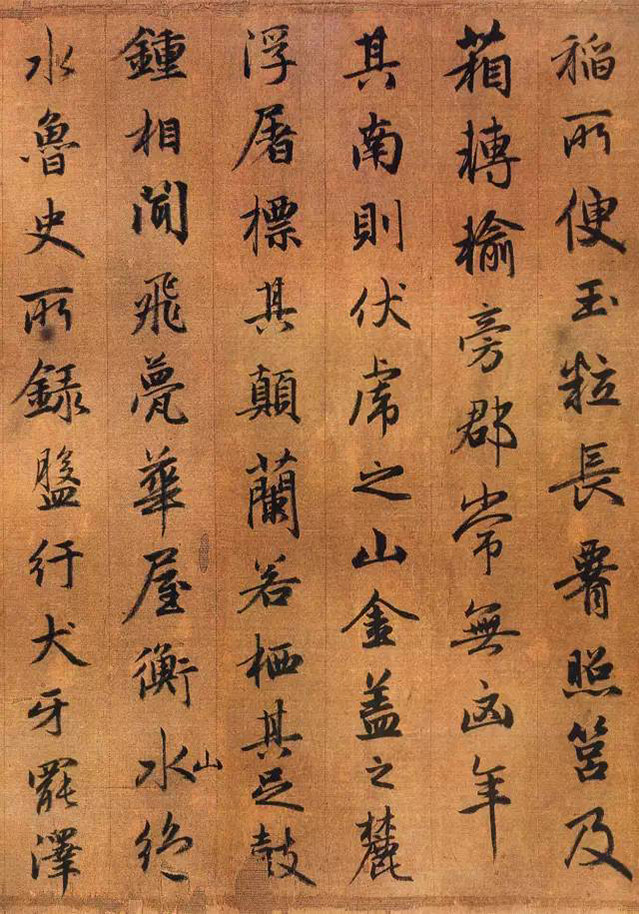 稻所便玉粒長腰照筥及
箱轉輸旁郡常無凶年
其南則伏虎之山金盖之麓
浮屠標其顛蘭若栖其足鼓
鍾相聞飛甍華屋衡水絶
山
水魯史所録盤紆犬牙罷澤